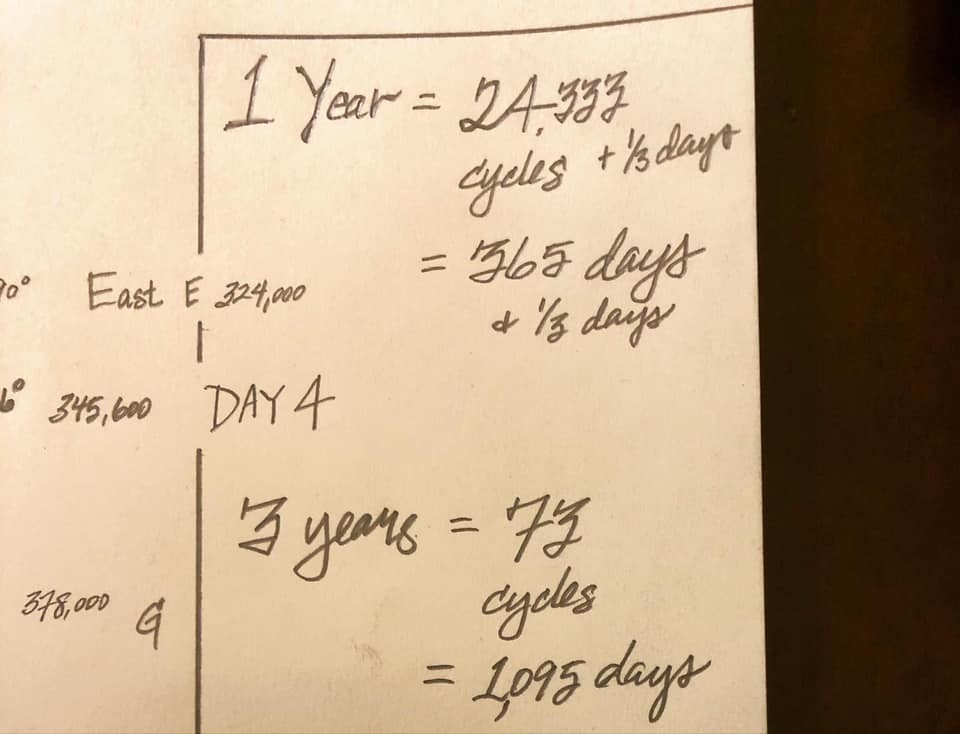 1 Year = 24,333
cycles + 1/3 days
= 365 days
& 1/3 days
90° East E 324,000
6° 345,600 DAY 4
3 years = 73
cycles
378,000 G
= 1,095 days